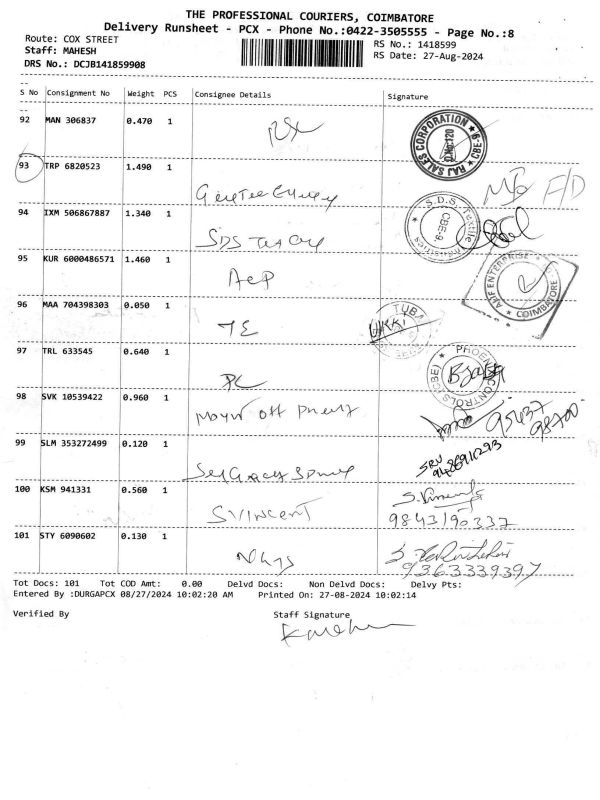 THE PROFESSIONAL COURIERS, COIMBATORE
Delivery Runsheet - PCX - Phone No.:0422-3505555 - Page No.:8
Route: COX STREET
RS No.: 1418599
Staff: MAHESH
RS Date: 27-Aug-2024
DRS No.: DCJB141859908
S No Consignment No Weight PCS Consignee Details Signature
92 MAN 306837 0.470 1
RAJ SALES CORPORATION CBE-9
93 TRP 6820523 1.490 1
F/D
94 IXM 506867887 1.340 1 SDS
S.D.S. Textile Industries CBE-9
95 KUR 6000486571 1.460 1
ENTERPRISE COIMBATORE
96 MAA 704398303 0.050 1 TE
TUBA
97 TRL 633545 0.640 1
PHOENIX CONTROLS (CBE)
98 SVK 10539422 0.960 1
99 SLM 353272499 0.120 1
100 KSM 941331 0.560 1 S VINCENT
9843190337
101 STY 6090602 0.130 1
9363339397
Tot Docs: 101 Tot COD Amt: 0.00 Delvd Docs: Non Delvd Docs: Delvy Pts:
Entered By :DURGAPCX 08/27/2024 10:02:20 AM Printed On: 27-08-2024 10:02:14
Verified By Staff Signature